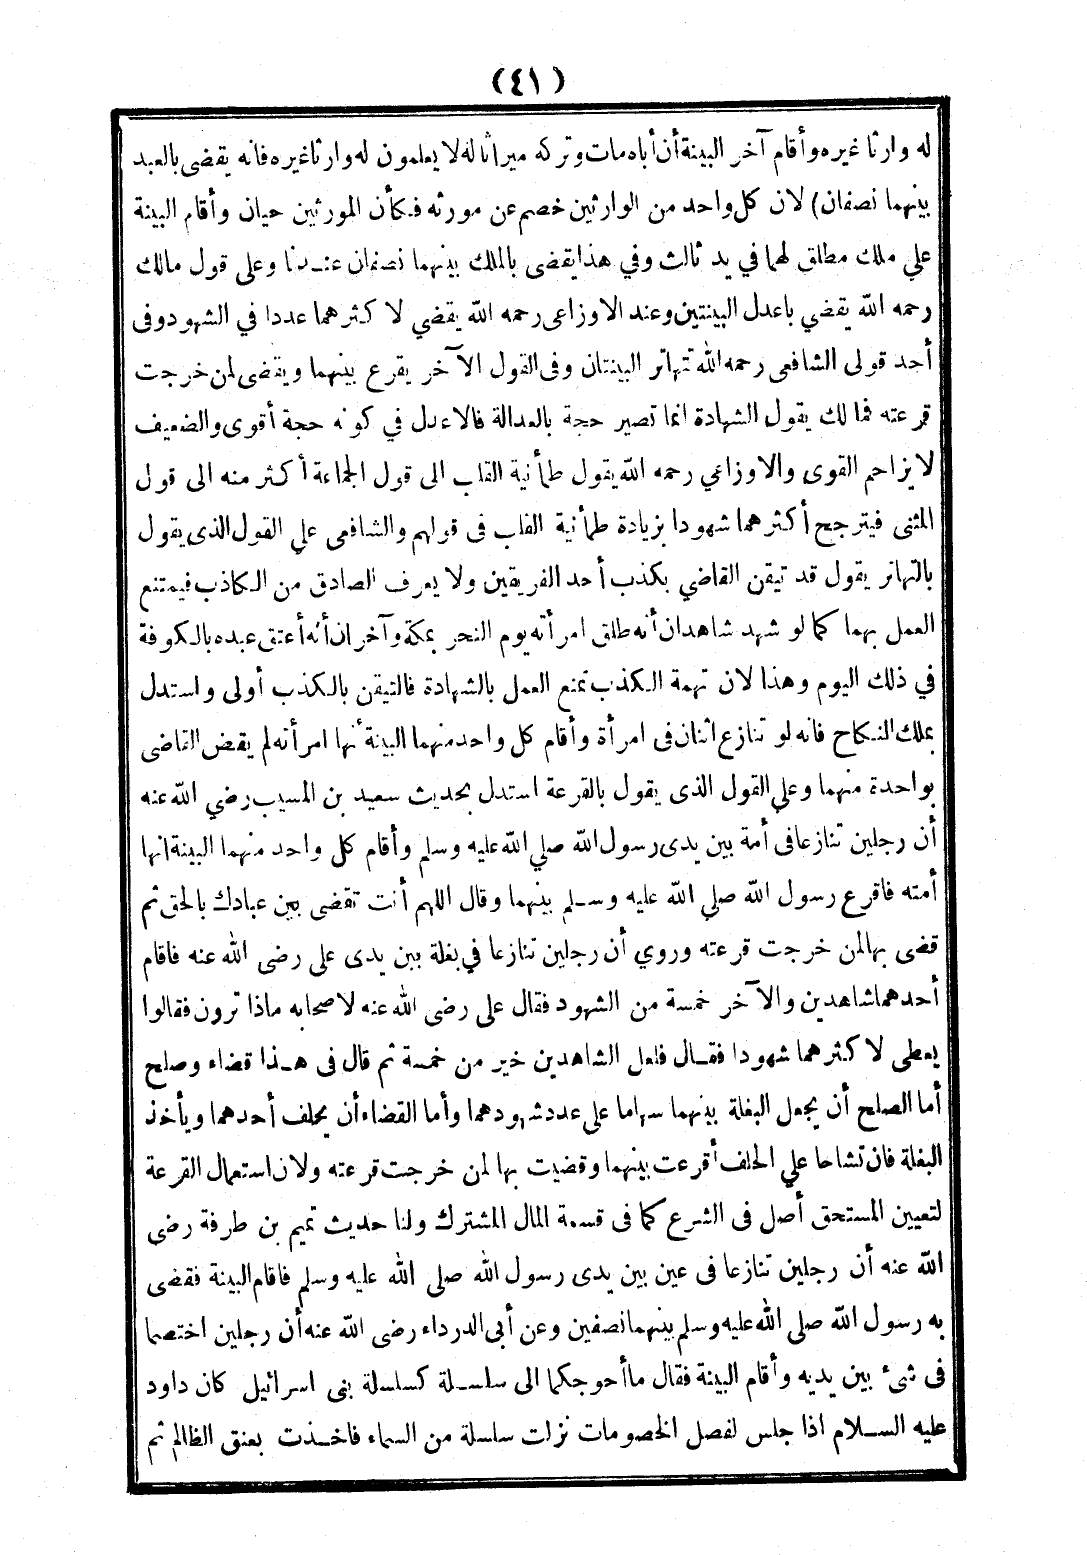 (٤١)
له وارثا غيره وأقام آخر البينة أن أباه مات وتركه ميراثا له لا يعلمون له وارثا غيره فانه يقضى بالعبد
بينهما نصفان) لان كل واحد من الوارثين خصم عن مورثه فكأن المورثين حيان وأقام البينة
علي ملك مطلق لهما في يد ثالث وفي هذا يقضى بالملك بينهما نصفان عندنا وعلى قول مالك
رحمه الله يقضي باعدل البينتين وعند الاوزاعى رحمه الله يقضي لا كثرهما عددا في الشهود وفى
أحد قولى الشافعى رحمه الله تتهاتر البينتان وفى القول الآخر يقرع بينهما ويقضى لمن خرجت
قرعته فمالك يقول الشهادة انما تصير حجة بالعدالة فالاعدل في كونه حجة أقوى والضعيف
لا يزاحم القوى والاوزاعي رحمه الله يقول طمأنية القلب الى قول الجماعة أكثر منه الى قول
المثنى فيترجح أكثرهما شهودا بزيادة طمأنية القلب فى قولهم والشافعى علي القول الذى يقول
بالتهاتر يقول قد تيقن القاضي بكذب أحد الفريقين ولا يعرف الصادق من الكاذب فيمتنع
العمل بهما كما لو شهد شاهدان أنه طلق امرأته يوم النحر بمكة وآخران أنه أعتق عبده بالكوفة
في ذلك اليوم وهذا لان تهمة الكذب تمنع العمل بالشهادة فالتيقن بالكذب أولى واستدل
بملك النكاح فانه لو تنازع اثنان فى امرأة وأقام كل واحد منهما البينة أنها امرأته لم يقض القاضى
بواحدة منهما وعلي القول الذى يقول بالقرعة استدل بحديث سعيد بن المسيب رضي الله عنه
أن رجلين تنازعا فى أمة بين يدى رسول الله صلي الله عليه وسلم وأقام كل واحد منهما البينة انها
أمته فاقرع رسول الله صلي الله عليه وسلم بينهما وقال اللهم أنت تقضى بين عبادك بالحق ثم
قضى بها لمن خرجت قرعته وروي أن رجلين تنازعا في بغلة بين يدى على رضى الله عنه فاقام
أحدهما شاهدين والآخر خمسة من الشهود فقال على رضى الله عنه لاصحابه ماذا ترون فقالوا
يعطى لا كثرهما شهودا فقال فلعل الشاهدين خير من خمسة ثم قال فى هذا قضاء وصلح
أما الصلح أن يجعل البغلة بينهما سهاما على عدد شهودهما وأما القضاء أن يحلف أحدهما ويأخذ
البغلة فان تشاحا علي الحلف أقرعت بينهما وقضيت بها لمن خرجت قرعته ولان استعمال القرعة
لتعيين المستحق أصل فى الشرع كما فى قسمة المال المشترك ولنا حديث تميم بن طرفة رضى
الله عنه أن رجلين تنازعا فى عين بين يدى رسول الله صلى الله عليه وسلم فاقام البينة فقضى
به رسول الله صلى الله عليه وسلم بينهما نصفين وعن أبى الدرداء رضى الله عنه أن رجلين اختصما
فى شئ بين يديه وأقام البينة فقال ما أحوجكما الى سلسلة كسلسلة بنى اسرائيل كان داود
عليه السلام اذا جلس لفصل الخصومات نزلت سلسلة من السماء فاخذت بعنق الظالم ثم